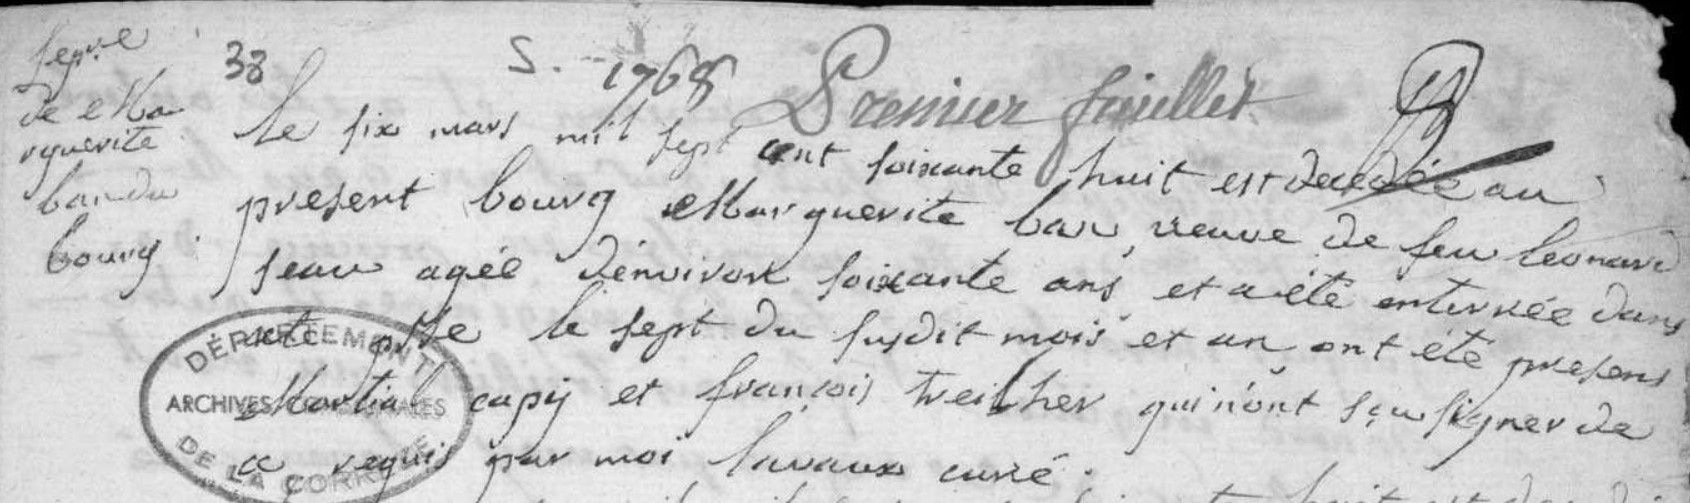 38 S. 1768 Premier feuillet
sepre
de Ma
rguerite
bar du
bourg
Le six mars mil sept cent soixante huit est decedée au
present bourg Marguerite bar, veuve de feu leonard
seau agée d'environ soixante ans et a été enterrée dans
cette psse le sept du susdit mois et an ont été presens
Martial capy et françois treilher qui n'ont sçu signer de
ce requis par moi lavaux curé.
DÉPARTEMENT
ARCHIVES COMMUNALES
DE LA CORRÈZE